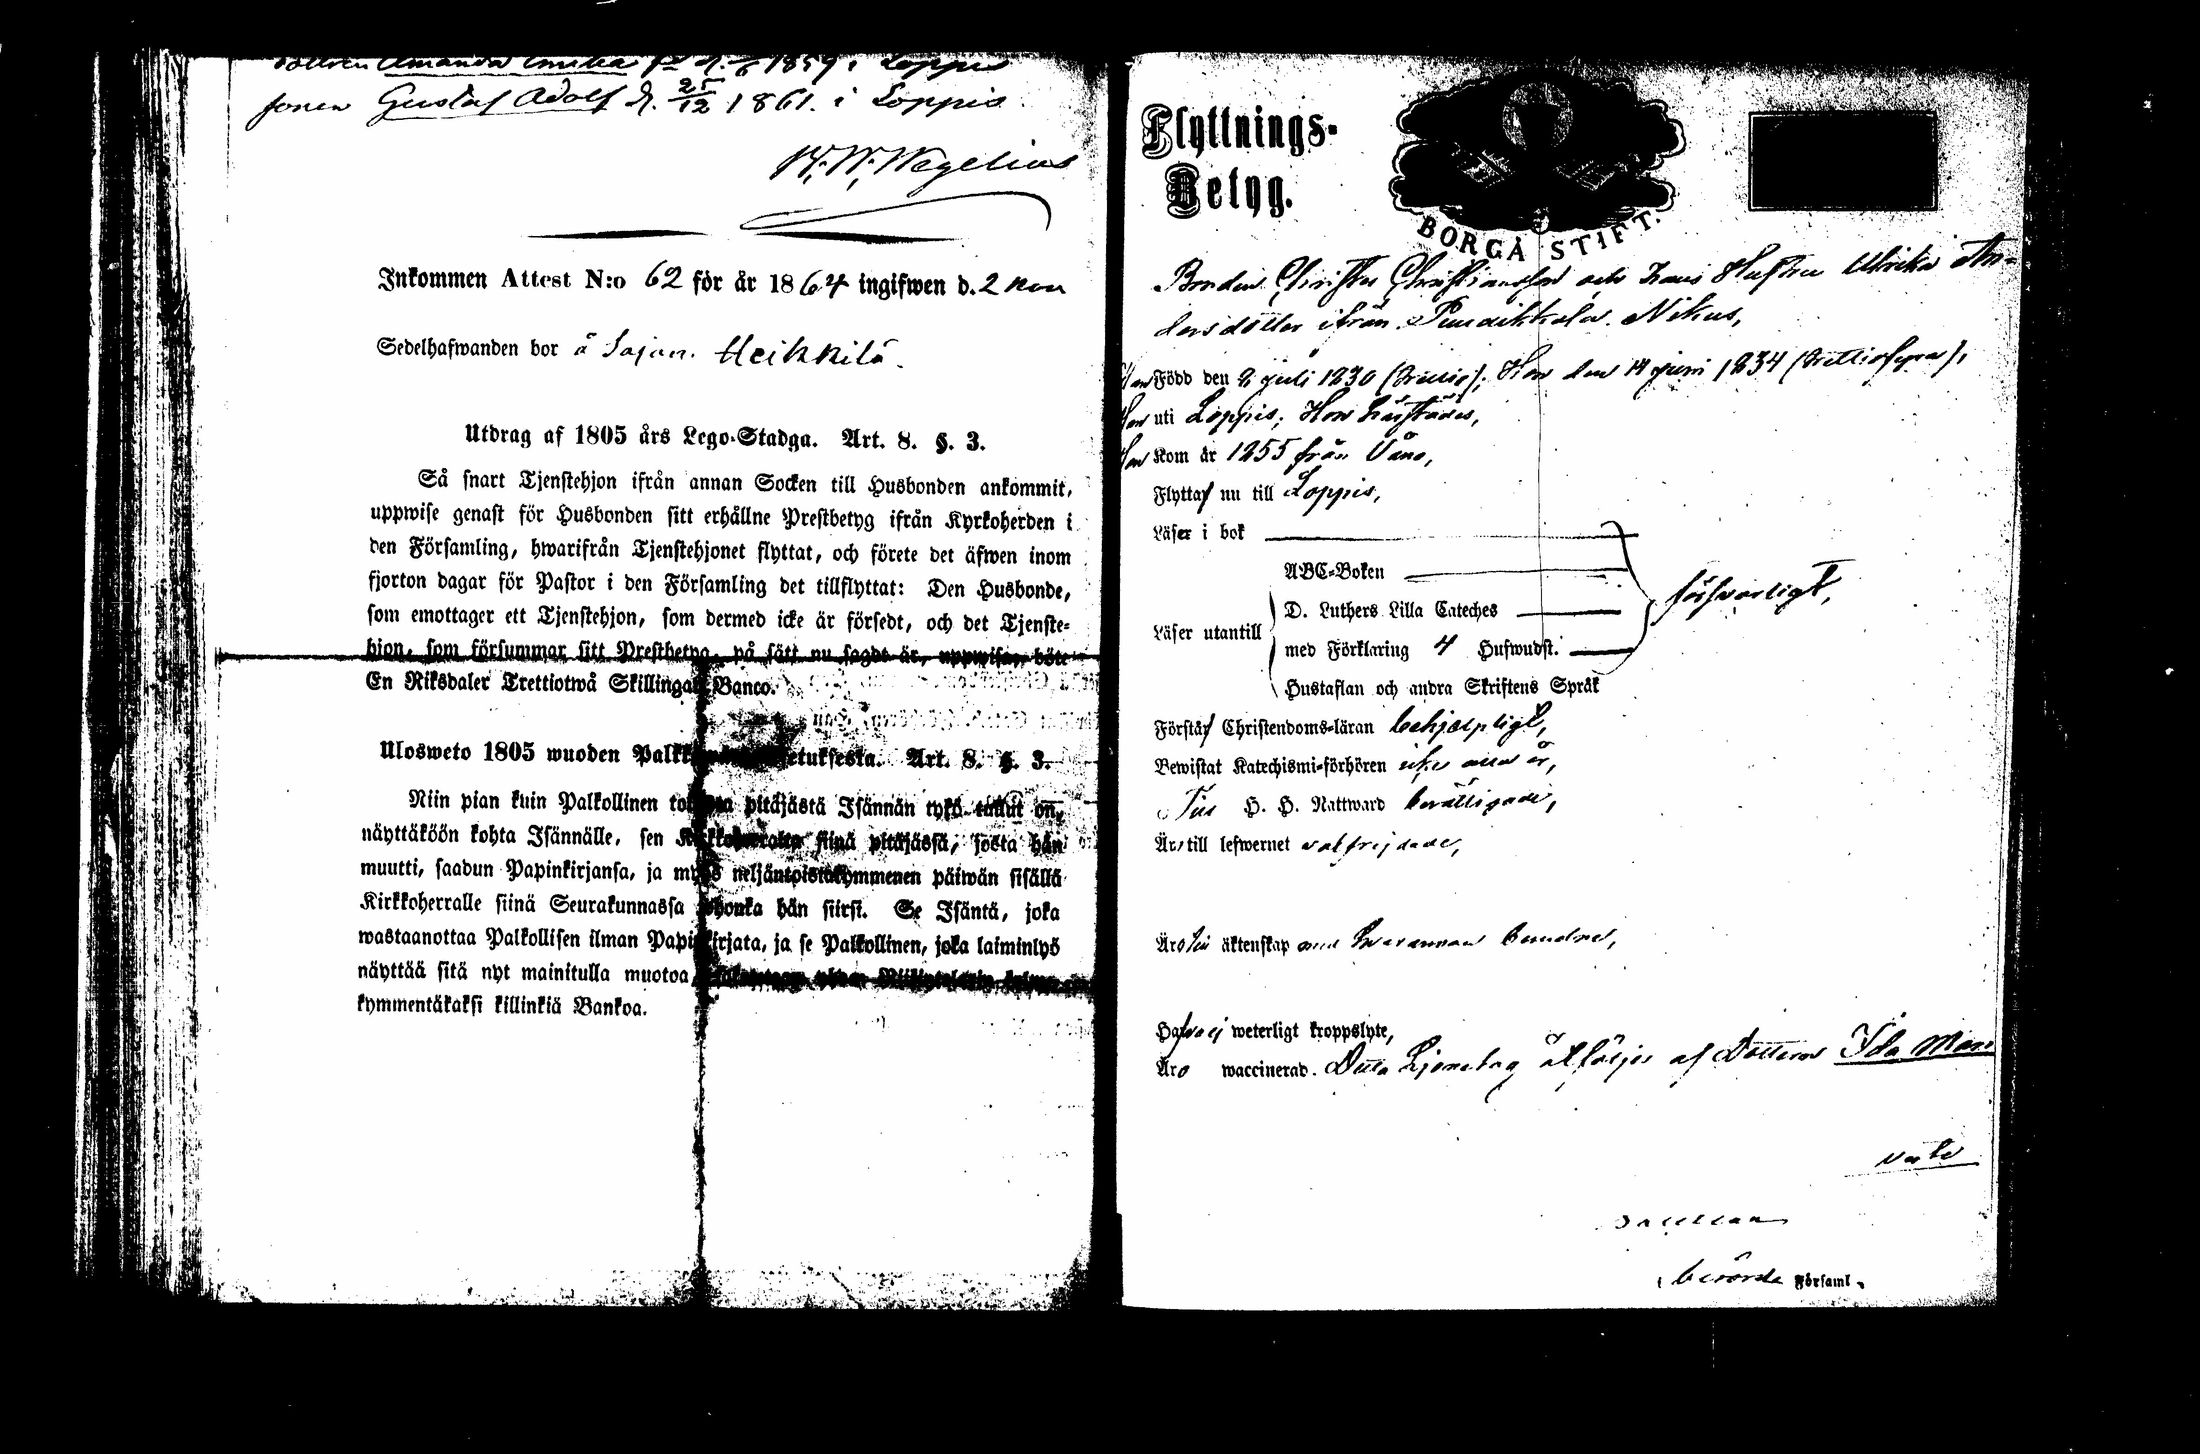 dottren Amanda 1859 i Loppis
sonen Gustaf Adolf d. 25/12 1861. i Loppis
W. W. Wegelius
Inkommen Attest N:o 62 för år 1864 ingifwen d. 2 Nov
Sedelhafwanden bor å Sajan. Heikkilä.
Utdrag af 1805 års Lego-Stadga. Art. 8. §. 3.
Så snart Tjenstehjon ifrån annan Socken till Husbonden ankommit,
uppwise genast för Husbonden sitt erhållne Prestbetyg ifrån Kyrkoherden i
den Församling, hwarifrån Tjenstehjonet flyttat, och förete det äfwen inom
fjorton dagar för Pastor i den Församling det tillflyttat: Den Husbonde,
som emottager ett Tjenstehjon, som dermed icke är försedt, och det Tjenste-
hjon, som försummar sitt Prestbetyg, på sätt nu sagdt är, uppwisa, böte
En Riksdaler Trettiotwå Skillingar Banco.
Ulosweto 1805 wuoden Art. 8. §. 3.
Niin pian kuin Palkollinen pitäjästä Isännän tykö tullut on,
näyttäköön kohta Isännälle, sen Kirkkoherralta siinä pitäjässä, josta hän
muutti, saadun Papinkirjansa, ja myös neljäntoistakymmenen päiwän sisällä
Kirkkoherralle siinä Seurakunnassa johonka hän siirsi. Se Isäntä, joka
wastaanottaa Palkollisen ilman Papinkirjata, ja se Palkollinen, joka laiminlyö
näyttää sitä nyt mainitulla muotoa
kymmentäkaksi killinkiä Bankoa.
Flyttnings-
Betyg.
BORGÅ STIFT.
Bonden Christer Christiansson och hans Hustru Ulrika An-
dersdotter ifrån Nikus,
Han Född den 2 juli 1830 (trettio); Hon den 14 juni 1834 (trettiofyra),
Han uti Loppis; Hon härstädes,
Han Kom år 1855 från Våno,
Flytta nu till Loppis,
Läser i bok
ABC-Boken
D. Luthers Lilla Cateches
försvarligt,
Läser utantill
med Förklaring 4 Hufwudst.
Hustaflan och andra Skriftens Språk
Förstår Christendoms-läran behjelpligt,
Bewistat Katechismi-förhören
Till H. H. Nattward berättigade,
Äro till lefwernet välfrejdade,
Äro till äktenskap med hvarannan bundne,
Hafwa ej weterligt kroppslyte,
Äro waccinerad. Detta åtföljes af Dottren Ida
berörde Församl